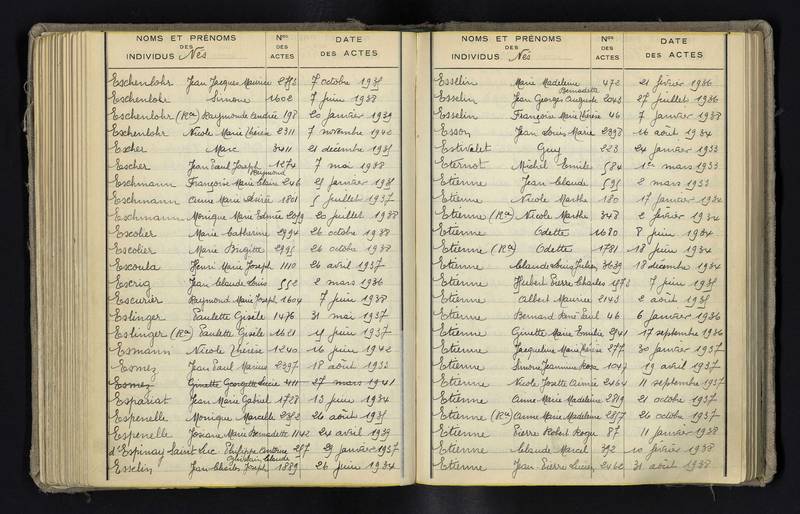 NOMS ET PRÉNOMS
DES
INDIVIDUS Nés
Nos
DES
ACTES
DATE
DES ACTES
Eschenlohr Jean Jacques Maurice 2773 7 octobre 1935
Eschenlohr Simone 1602 7 juin 1938
Eschenlohr (Ra) Raymonde Andrée 198 20 janvier 1939
Eschenlohr Nicole Marie Thérèse 2311 7 novembre 1942
Escher Marc 3411 21 décembre 1935
Escher Jean Paul Joseph 1274 7 mai 1938
Raymond
Eschmann Françoise Marie Claire 246 25 janvier 1935
Eschmann Anne Marie Désirée 1801 5 juillet 1937
Eschmann Monique Marie Edmée 2019 20 juillet 1938
Escolier Marie Catherine 2994 26 octobre 1938
Escolier Marie Brigitte 2995 26 octobre 1938
Escoula Henri Marie Joseph 1110 26 avril 1937
Escrig Jean Claude Louis 552 2 mars 1936
Escurier Raymond Marie Joseph 1604 7 juin 1938
Eslinger Paulette Gisèle 1476 31 mai 1937
Eslinger (Ra) Paulette Gisèle 1621 15 juin 1937
Esmann Nicole Thérèse 1240 16 juin 1942
Esmez Jean Paul Marius 2397 18 août 1933
Esmez Ginette Georgette Lucie 411 27 mars 1941
Espariat Jean Marie Gabriel 1728 13 juin 1934
Espenelle Monique Marcelle 2382 26 août 1935
Espenelle Josiane Marie Bernadette 1142 24 avril 1939
d'Espinay Saint Luc Philippe Antoine 287 29 janvier 1937
Ghislain Claude
Esselin Jean Charles Joseph 1889 26 juin 1934
NOMS ET PRÉNOMS
DES
INDIVIDUS Nés
Nos
DES
ACTES
DATE
DES ACTES
Esselin Marie Madeleine 472 21 février 1936
Bernadette
Esselin Jean Georges Auguste 2043 27 juillet 1936
Esselin Françoise Marie Thérèse 46 7 janvier 1938
Esson Jean Louis Marie 2398 16 août 1934
Estivalet Guy 223 24 janvier 1933
Eternot Michel Emile 584 1er mars 1933
Etienne Jean Claude 595 2 mars 1933
Etienne Nicole Marthe 180 17 janvier 1934
Etienne (Ra) Nicole Marthe 348 2 février 1934
Etienne Odette 1680 8 juin 1934
Etienne (Ra) Odette 1781 18 juin 1934
Etienne Claude Louis Julien 3639 18 décembre 1934
Etienne Hubert Pierre Charles 1573 7 juin 1935
Etienne Albert Maurice 2143 2 août 1935
Etienne Bernard René Paul 46 6 janvier 1936
Etienne Ginette Marie Emilie 2541 17 septembre 1936
Etienne Jacqueline Marie Thérèse 277 30 janvier 1937
Etienne Simone Jeannine Rose 1047 19 avril 1937
Etienne Nicole Josette Aimée 2464 11 septembre 1937
Etienne Anne Marie Madeleine 2819 21 octobre 1937
Etienne (Ra) Anne Marie Madeleine 2857 26 octobre 1937
Etienne Pierre Robert Roger 87 11 janvier 1938
Etienne Claude Marcel 392 10 février 1938
Etienne Jean Pierre Lucien 2462 31 août 1938